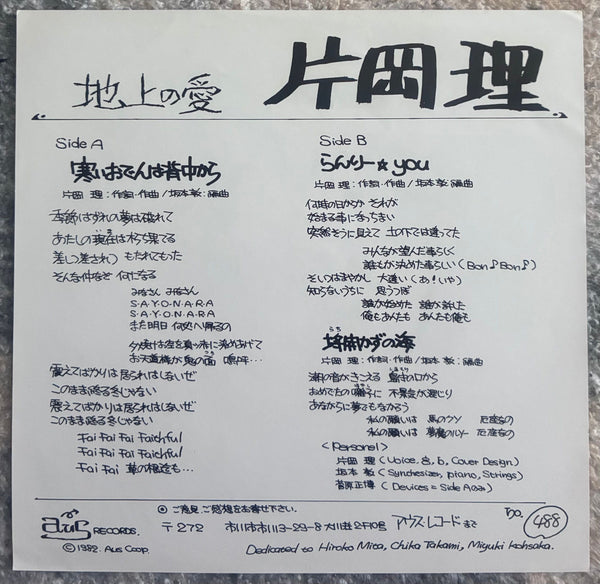 地上の愛 片岡 理
Side A
寒いおでんは背中から
片岡 理:作詞・作曲/坂本 敦:編曲
季節はずれの夢は破れて
あたしの現在は朽ち果てる
差しつ差されつ もたれてもった
そんな仲など 何になる
みなさん みなさん
S・A・Y・O・N・A・R・A
S・A・Y・O・N・A・R・A
また明日 何処へ帰るの
夕焼けは空を真っ赤に染めあげて
お天道様が鬼の面 嗚呼…
震えてばかりは居られはしないぜ
このまま降る冬じゃない
震えてばかりは居られはしないぜ
このまま降る冬じゃない
Fai Fai Fai Faithful
Fai Fai Fai Faithful
Fai Fai 華の極道も…
Side B
らんりー☆you
片岡 理:作詞・作曲/坂本 敦:編曲
何時の日からか それが
始まる事になっちまい
突然そうに見えて 土の下では違ってた
みんなが望んだ事らしく
誰もが決めた事らしい(Bon♪Bon♪)
そいつはまやかし 大違い(あ!いや)
知らないうちに 思うつぼ
誰が始めた 誰が許した
俺もあんたも あんたも俺も
埒開かずの海
らち
片岡 理:作詞・作曲/坂本 敦:編曲
潮の音がきこえる 島の口から
おめでたの囃子に 不景気が混じり
あながちに夢でもなかろう
私の願いは 馬のクソ 厄座なの
私の願いは 夢魔のルソー 厄座なの
<Personel>
片岡 理(Voice, g, b, Cover Design)
坂本 敦(Synthesizer, piano, Strings)
菅原正博(Devices=Side Aのみ)
◎ご意見、ご感想をお寄せ下さい。
aus RECORDS.
〒272 市川市市川3-29-8 大川荘2F10号 アウス・レコードまで
No. 488
©1982. Aus Coop.
Dedicated to Hiroko Mita, Chika Takami, Miyuki Kohsaka.